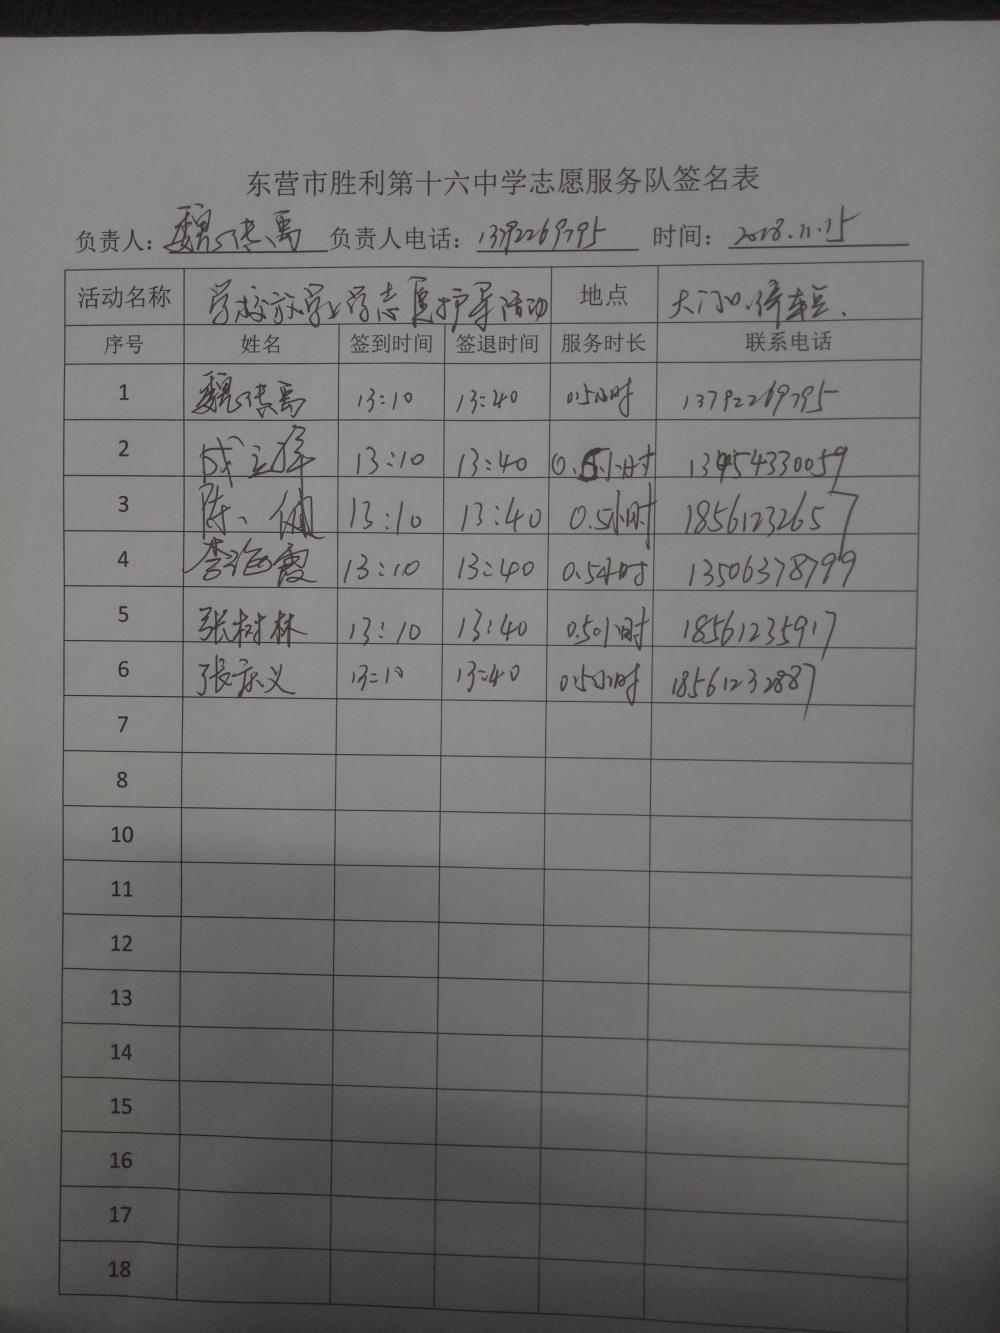 东营市胜利第十六中学志愿服务队签名表
负责人：魏传禹 负责人电话：13792269795 时间：2018.11.15
活动名称 学校放学上学志愿护导活动 地点 大门口.停车区.
序号 姓名 签到时间 签退时间 服务时长 联系电话
1 魏传禹 13:10 13:40 0.5小时 13792269795
2 成立 13:10 13:40 0.5小时 13454330059
3 陈 13:10 13:40 0.5小时 18561232657
4 李海霞 13:10 13:40 0.5小时 13506378799
5 张树林 13:10 13:40 0.5小时 18561235917
6 张庆义 13:10 13:40 0.5小时 18561232887
7
8
10
11
12
13
14
15
16
17
18